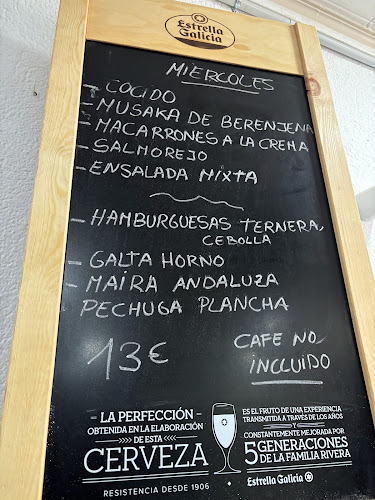 Estrella
Galicia
MIERCOLES
- COCIDO
- MUSAKA DE BERENJENA
- MACARRONES A LA CREMA
- SALMOREJO
- ENSALADA MIXTA
- HAMBURGUESAS TERNERA,
CEBOLLA
- GALTA HORNO
- MAIRA ANDALUZA
PECHUGA PLANCHA
13€
CAFE NO
INCLUIDO
- LA PERFECCIÓN -
OBTENIDA EN LA ELABORACIÓN
DE ESTA
CERVEZA
RESISTENCIA DESDE 1906
ES EL FRUTO DE UNA EXPERIENCIA
TRANSMITIDA A TRAVÉS DE LOS AÑOS
Y
CONSTANTEMENTE MEJORADA POR
5 GENERACIONES
DE LA FAMILIA RIVERA
Estrella Galicia